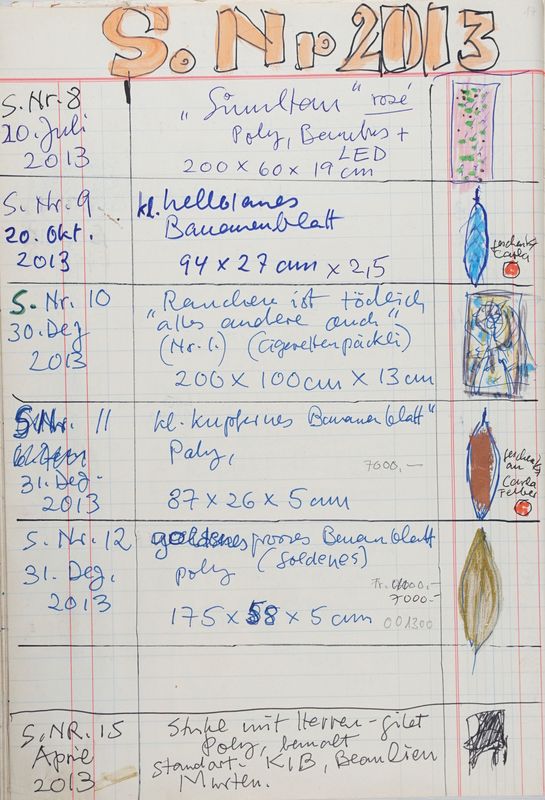 S. Nr 2013
S. Nr. 8 „Simultan" rosé
20. Juli Poly, Bambus +
2013 LED
200 x 60 x 19 cm
S. Nr. 9 kl. hellblaues
20. Okt. Bananenblatt
2013 94 x 27 cm x 2,5
geschenkt
Carla
S. Nr. 10 „Rauchen ist tödlich
30. Dez alles andere auch"
2013 (Nr. 1.) (Cigarettenpäckli)
200 x 100 cm x 13 cm
S. Nr. 11 kl. kupfernes Bananenblatt"
Poly, 7000,—
31. Dez.
2013 87 x 26 x 5 cm
geschenkt
an
Carla
Felber
S. Nr. 12 grosses Bananenblatt
31. Dez. poly (goldenes)
2013 7000.-
175 x 58 x 5 cm 001300
S. NR. 15 Stuhle mit Herren-gilet
April Poly, bemalt
2013 standort. KIB, Beaulieu
Murten.